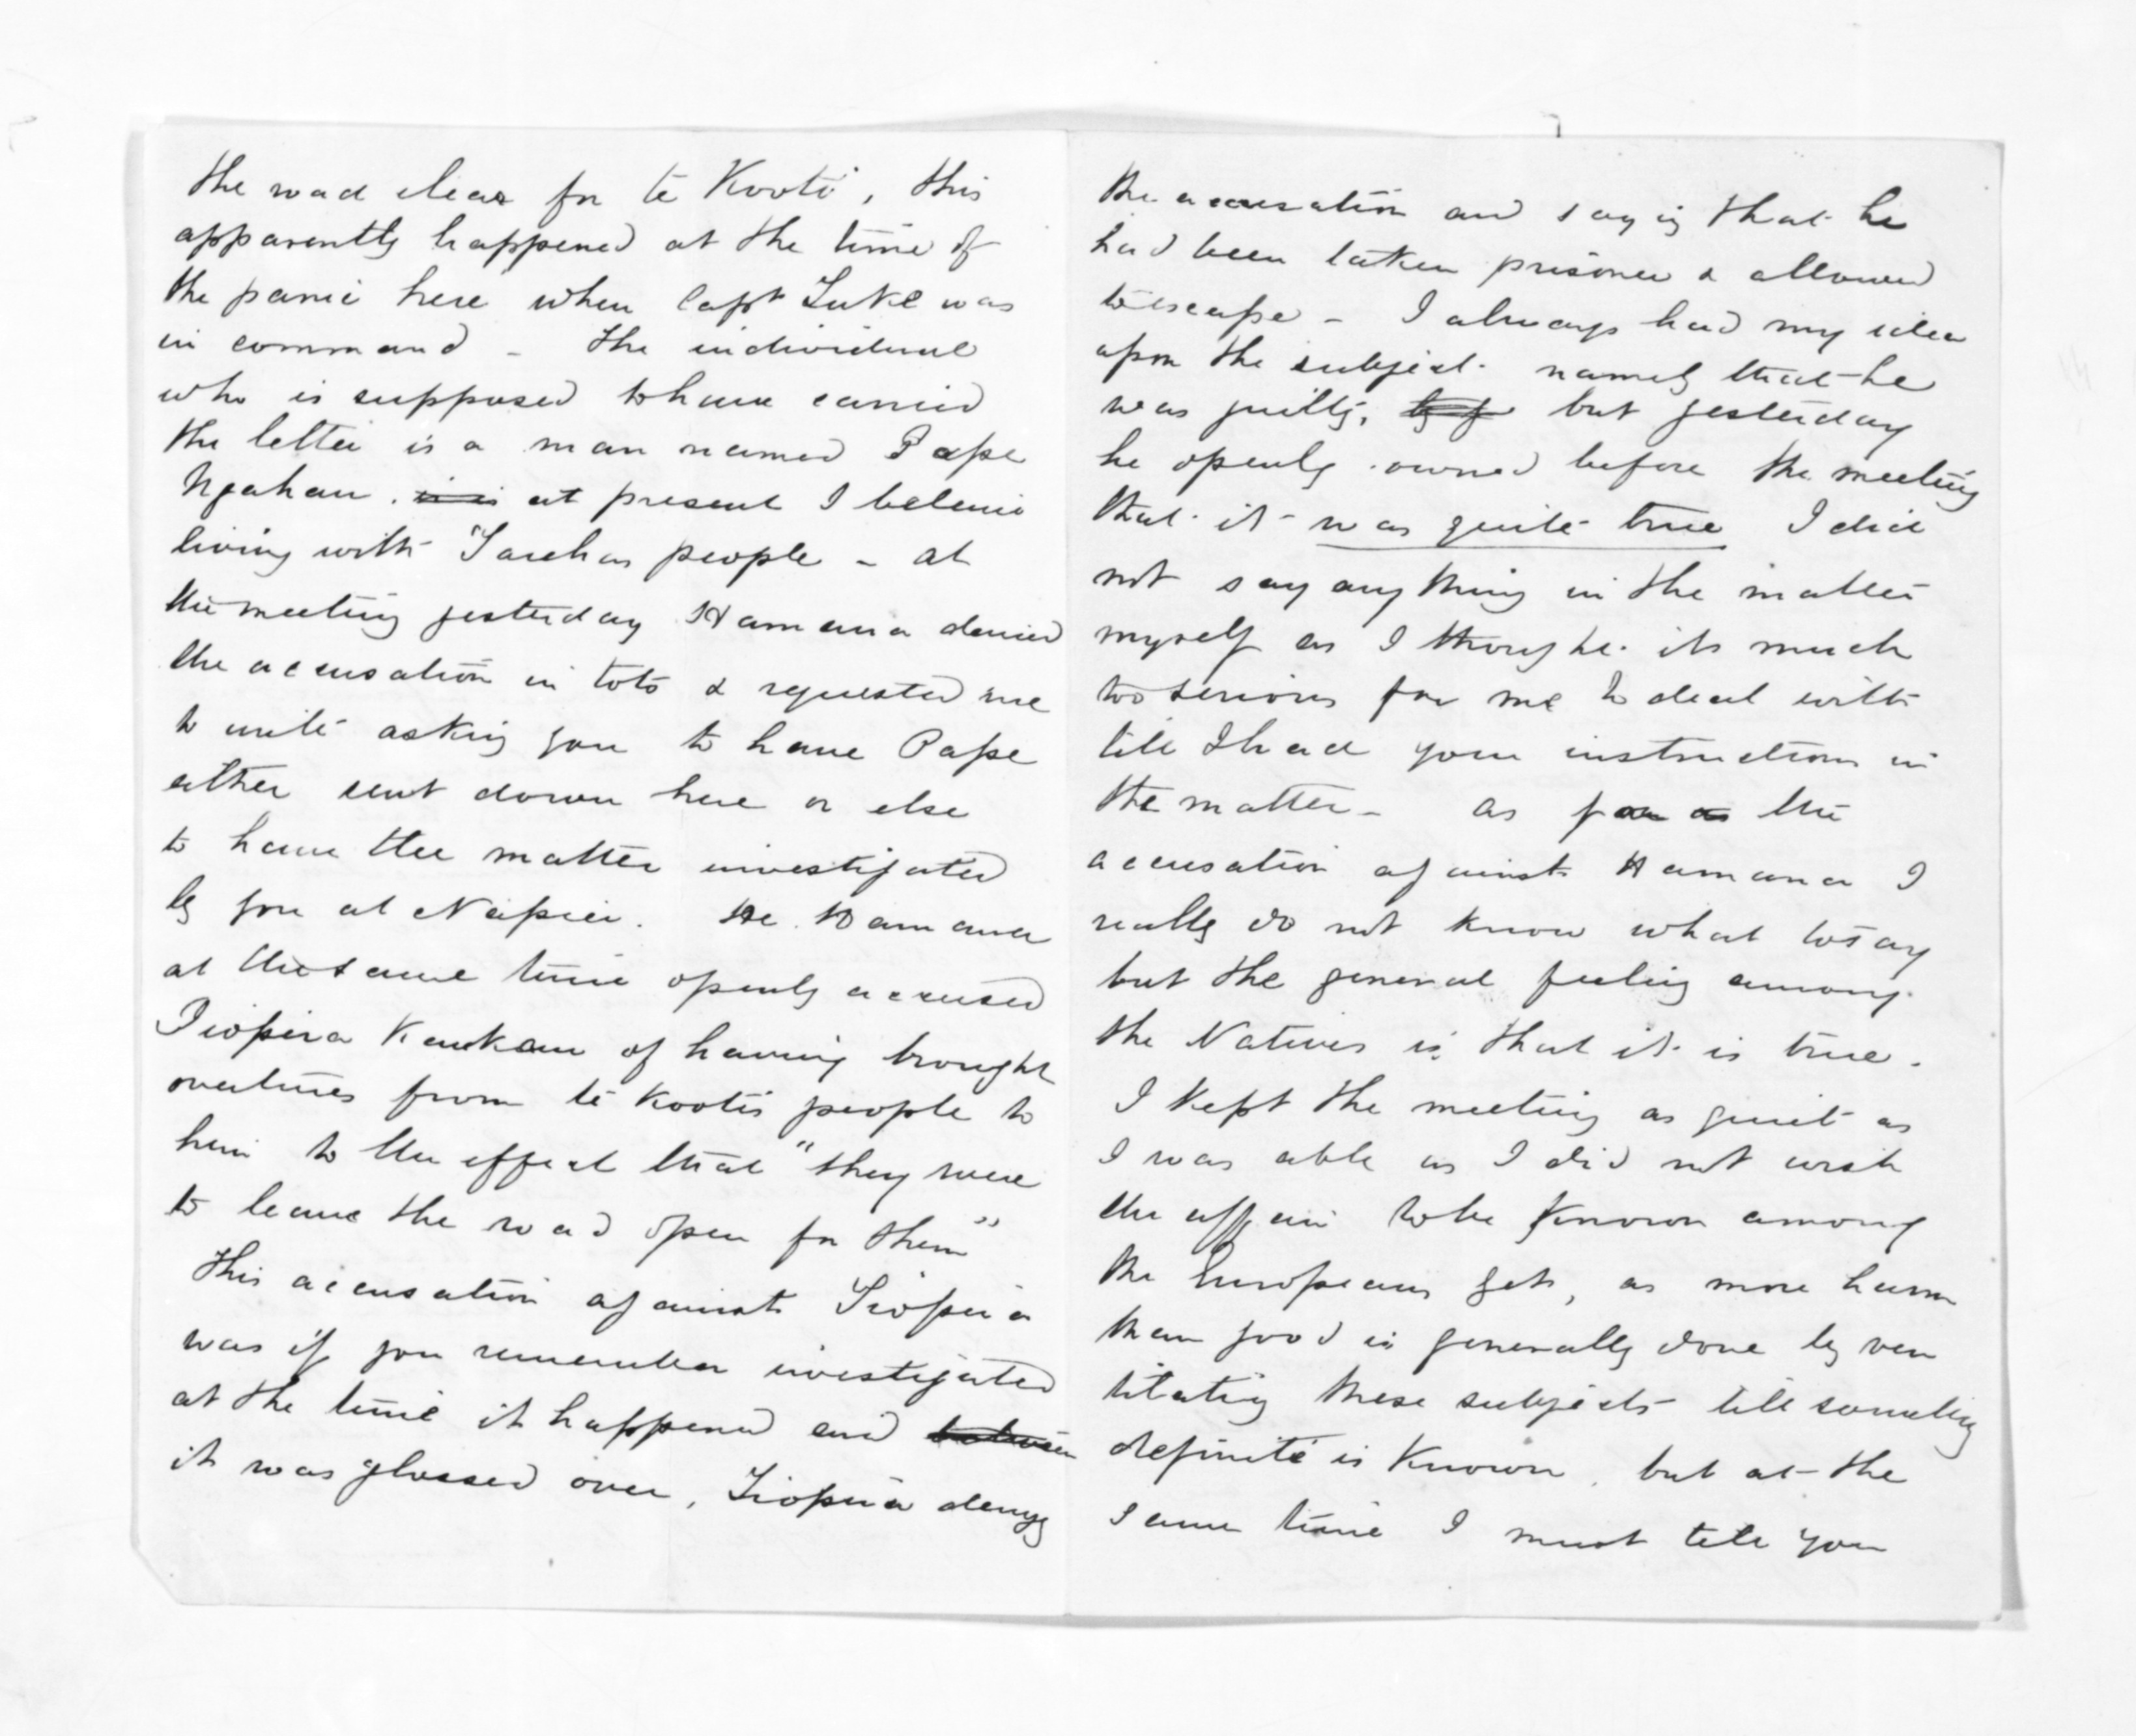 the road clear for te Kooti", this
apparently happened at the time of
the panic here when Capt Tuke was
in command - The individual
who is supposed to have carried
the letter is a man named Pape
Ngahau. at present I beleive
living with Tarehas people - at
the meeting yesterday Hamana denied
the accusation in toto & requested me
to write asking you to have Pape
either sent down here or else
to have the matter investigated
by you at Napier. He Hamana
at the same time openly accused
Tiopira Kaukau of having brought
overtures from te Kootis people to
him to the effect that "they were
to leave the road open for them"
This accusation against Tiopira
was if you remember investigated
at the time it happened and
it was glossed over, Tiopira denyg
the accusation and saying that he
had been taken prisoner & allowed
to escape - I always had my idea
upon the subject namely that he
was guilty, but yesterday
he openly owned before the meeting
that it was quite true I did
not say anything in the matter
myself as I thought its much
too serious for me to deal with
till I had your instructions in
the matter - as for the
accusation against Hamana I
really do not know what to say
but the general feeling among
the Natives is that it is true.
I kept the meeting as quiet as
I was able as I did not wish
the affair to be known among
the Europeans yet, as more harm
than good is generally done by ven
tilating these subjects till something
definite is known, but at the
same time I must tell you